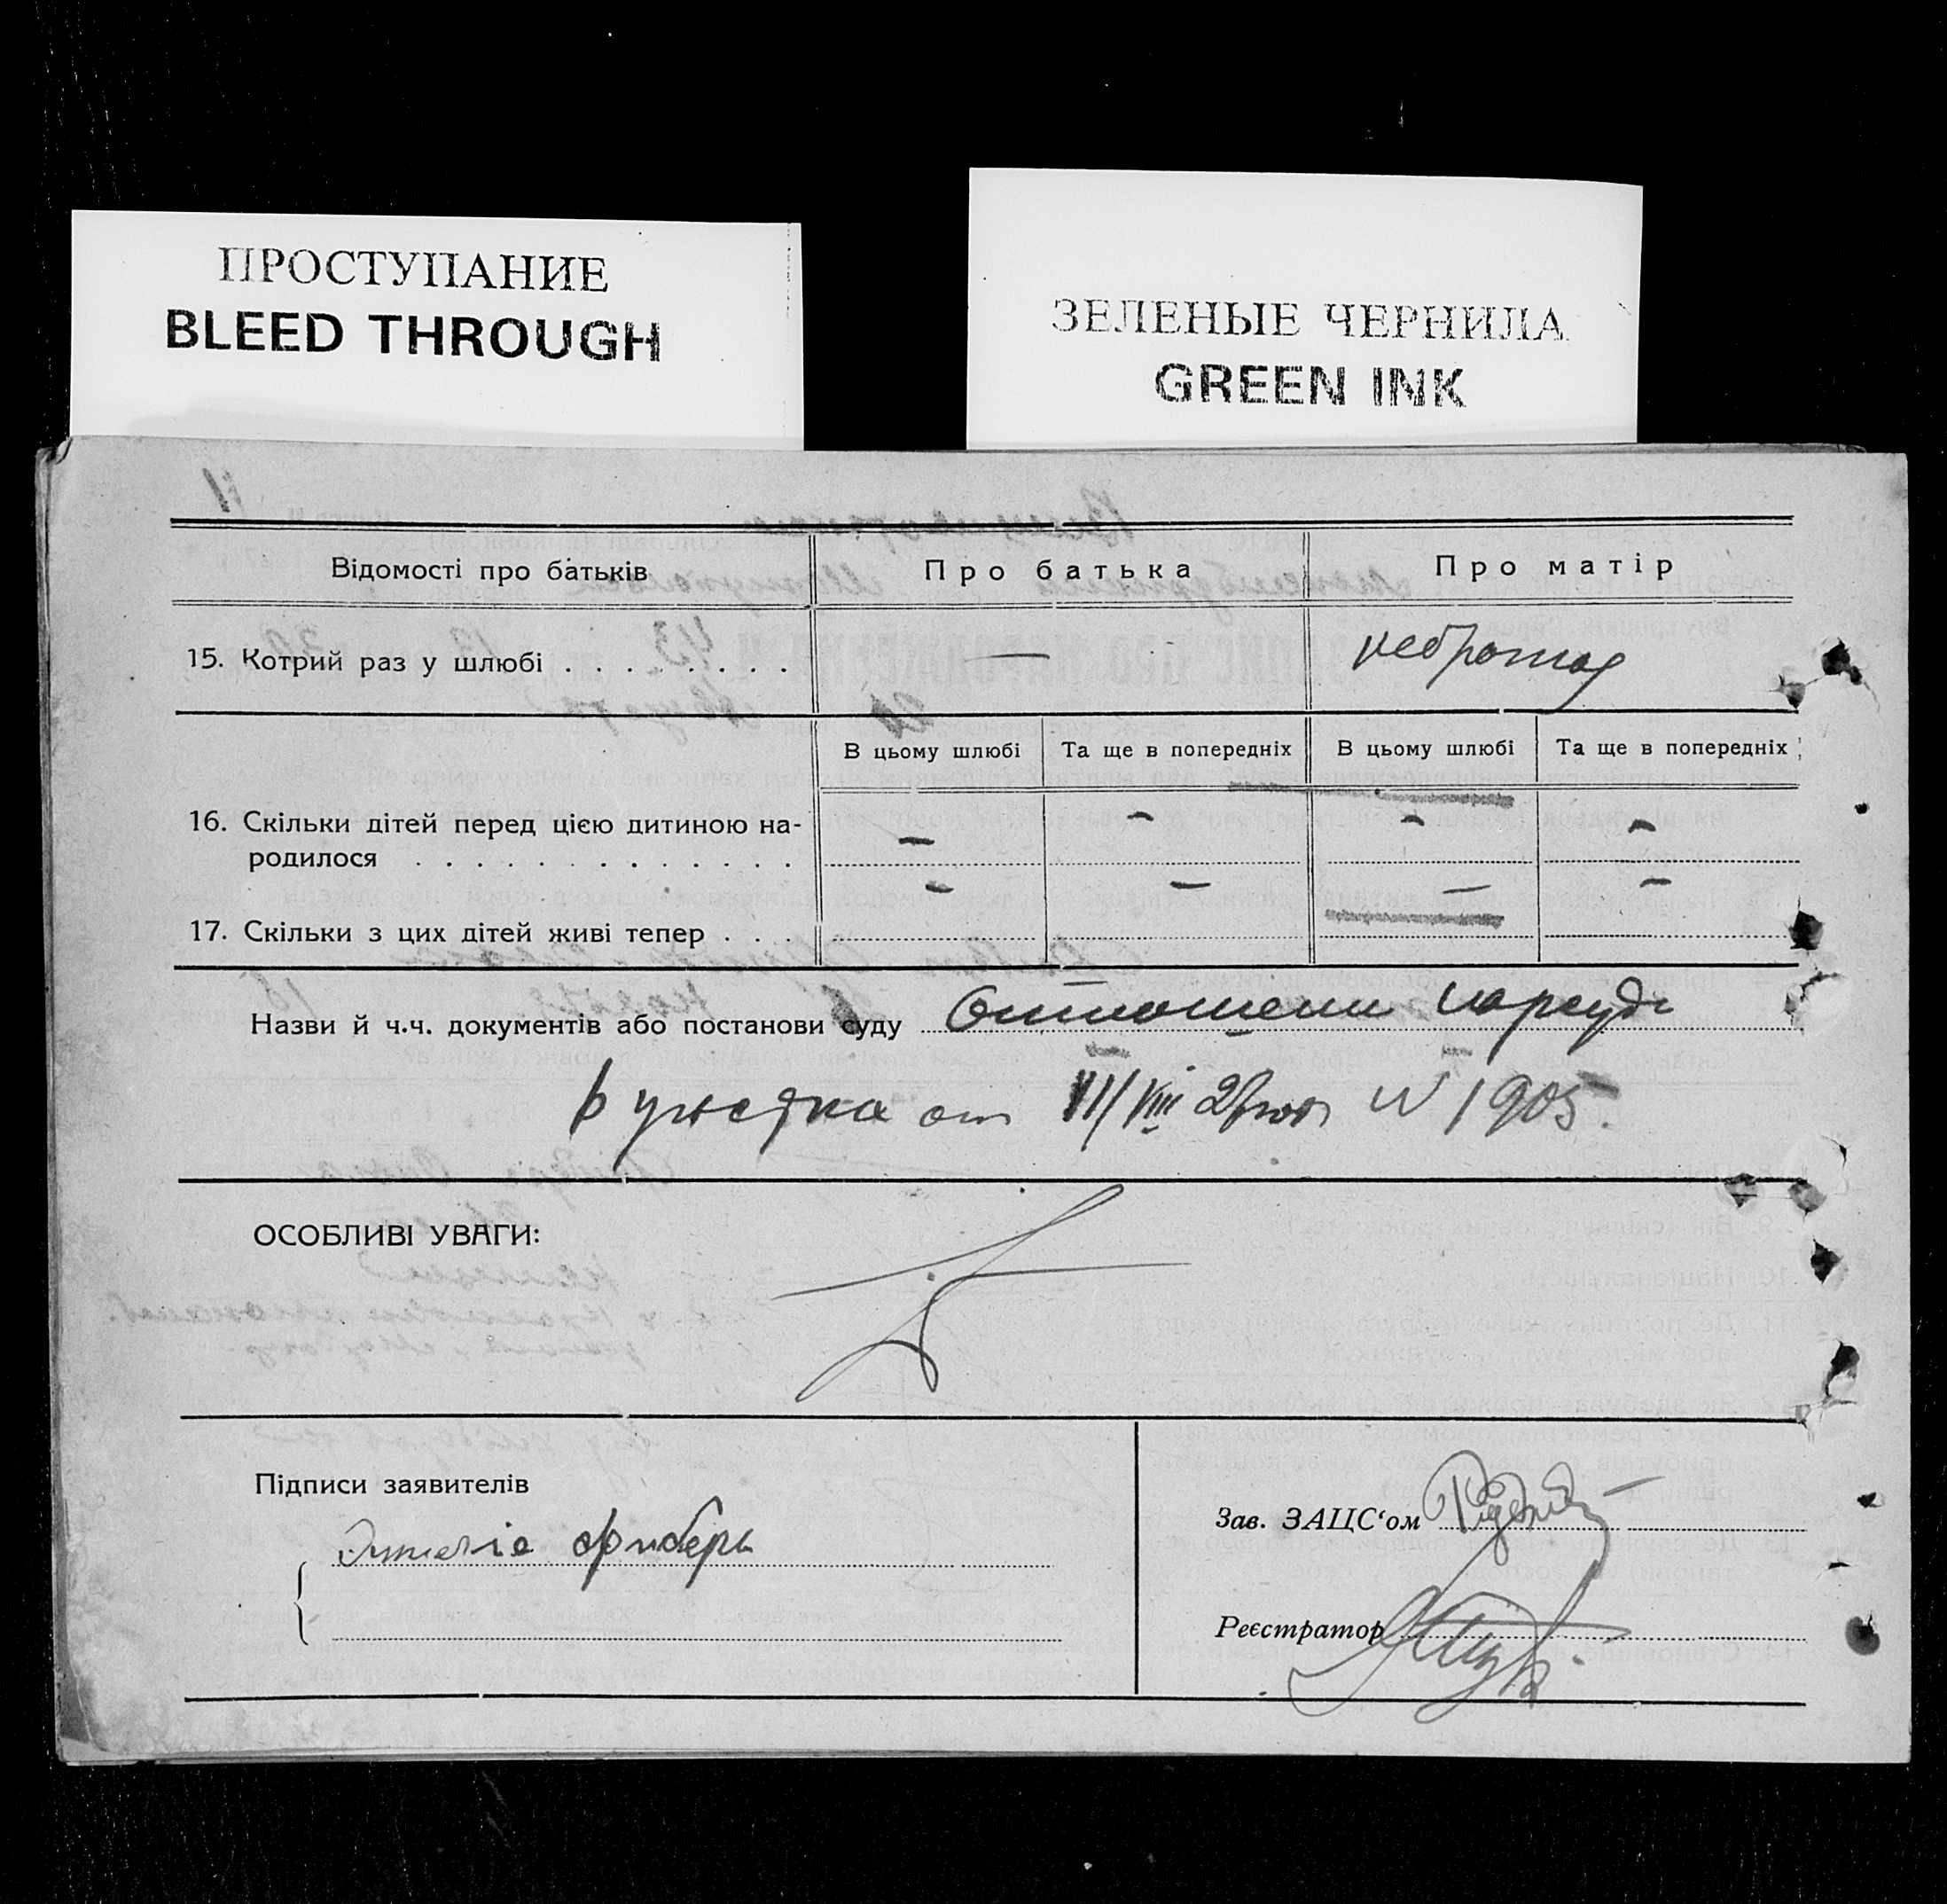 ПРОСТУПАНИЕ
BLEED THROUGH
ЗЕЛЕНЫЕ ЧЕРНИЛА
GREEN INK
Відомості про батьків
Про батька
Про матір
15. Котрий раз у шлюбі . . . . . . . .
—
В цьому шлюбі
Та ще в попередніх
В цьому шлюбі
Та ще в попередніх
16. Скільки дітей перед цією дитиною на-
родилося . . . . . . . . . . . . .
— — — —
17. Скільки з цих дітей живі тепер . . .
— — — —
Назви й ч.ч. документів або постанови суду Отношение нарсуда
участка от VIII N 1905.
ОСОБЛИВІ УВАГИ:
Підписи заявителів
Зав. ЗАЦС‘ом
Реєстратор